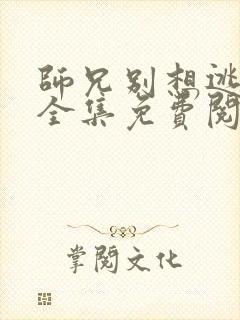 師兄別想逃
全集免費閱
掌閱文化